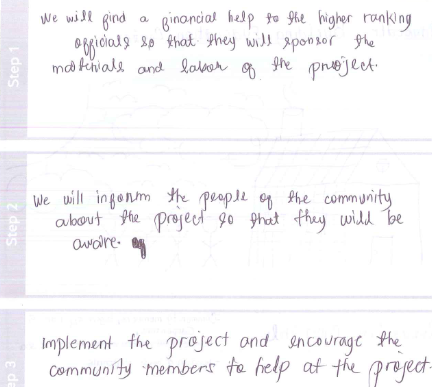 Step 1
We will find a financial help to the higher ranking
officials so that they will sponsor the
materials and labor of the project.
Step 2
We will inform the people of the community
about the project so that they will be
aware.
ep 3
Implement the project and encourage the
community members to help at the project.